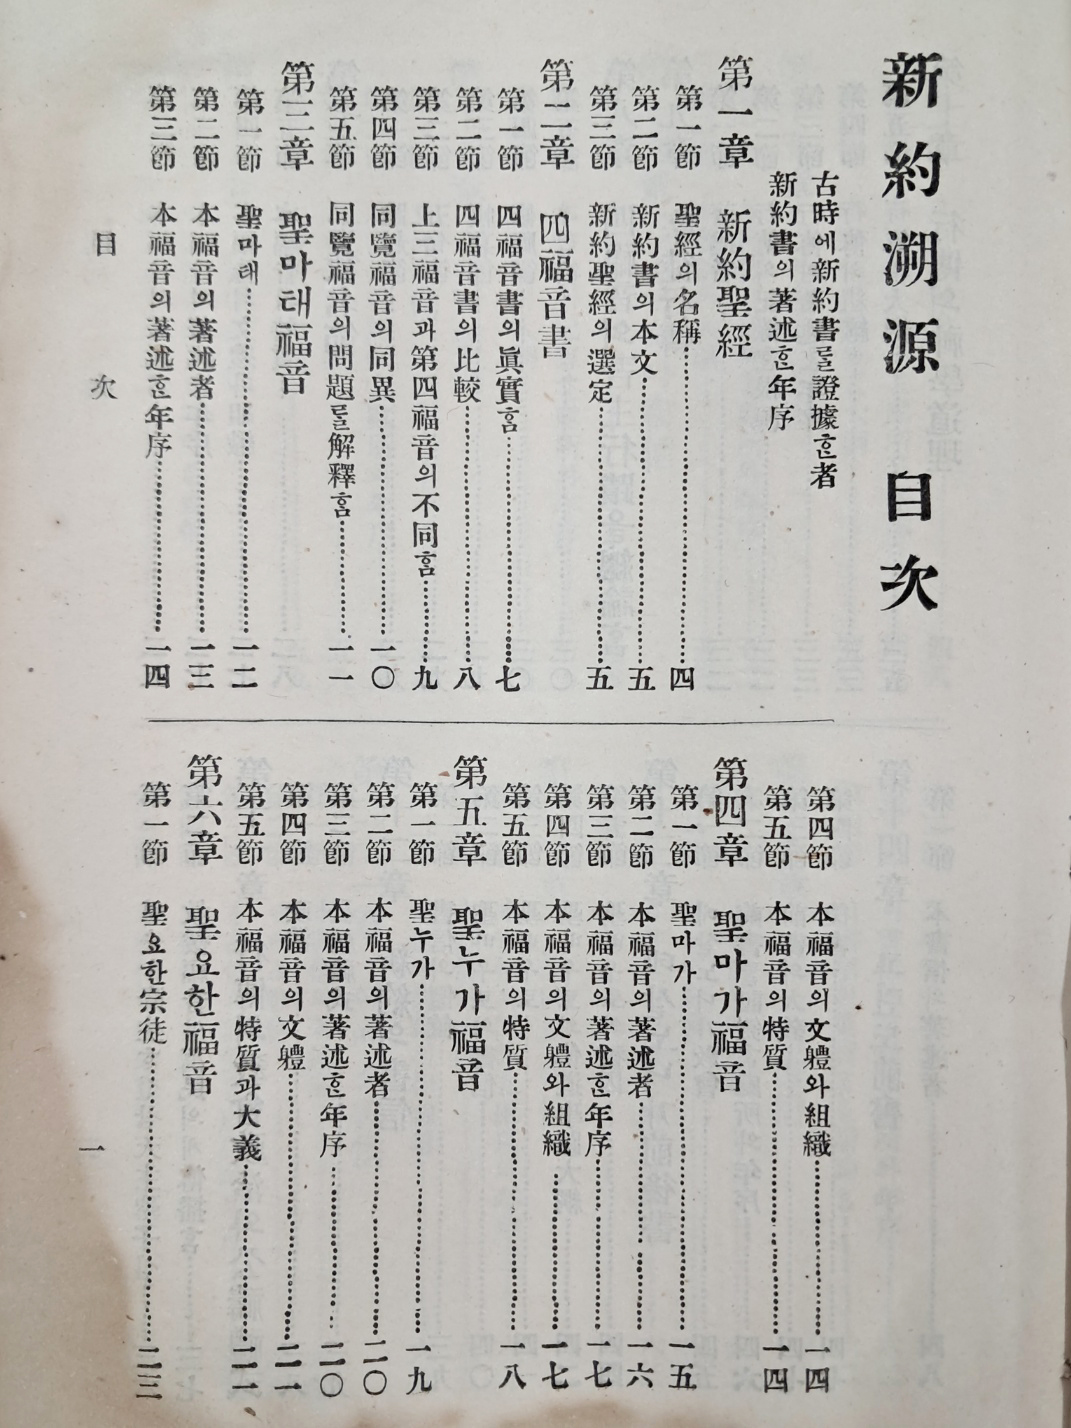 新約溯源 目次
古時에新約書를證據한者
新約書의著述한年序
第一章 新約聖經
第一節 聖經의名稱……四
第二節 新約書의本文……五
第三節 新約聖經의選定……五
第二章 四福音書
第一節 四福音書의眞實홈……七
第二節 四福音書의比較……八
第三節 上三福音과第四福音의不同홈……九
第四節 同覽福音의同異……一〇
第五節 同覽福音의問題를解釋홈……一一
第三章 聖마태福音
第一節 聖마태……一二
第二節 本福音의著述者……一三
第三節 本福音의著述한年序……一四
第四節 本福音의文軆와組織……一四
第五節 本福音의特質……一四
第四章 聖마가福音
第一節 聖마가……一五
第二節 本福音의著述者……一六
第三節 本福音의著述한年序……一七
第四節 本福音의文軆와組織……一七
第五節 本福音의特質……一八
第五章 聖누가福音
第一節 聖누가……一九
第二節 本福音의著述者……二〇
第三節 本福音의著述한年序……二〇
第四節 本福音의文軆……二一
第五節 本福音의特質과大義……二一
第六章 聖요한福音
第一節 聖요한宗徒……二三
目次 一